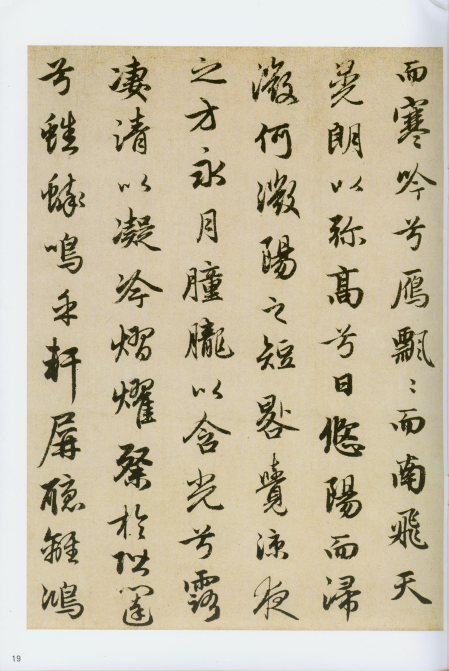 而寒吟兮鴈飄〻而南飛天
晃朗以弥高兮日悠陽而浸
微何微陽之短晷覺涼夜
之方永月朣朧以含光兮露
凄清以凝冷熠燿粲於階闥
兮蟋蟀鳴乎軒屏聽離鴻
19